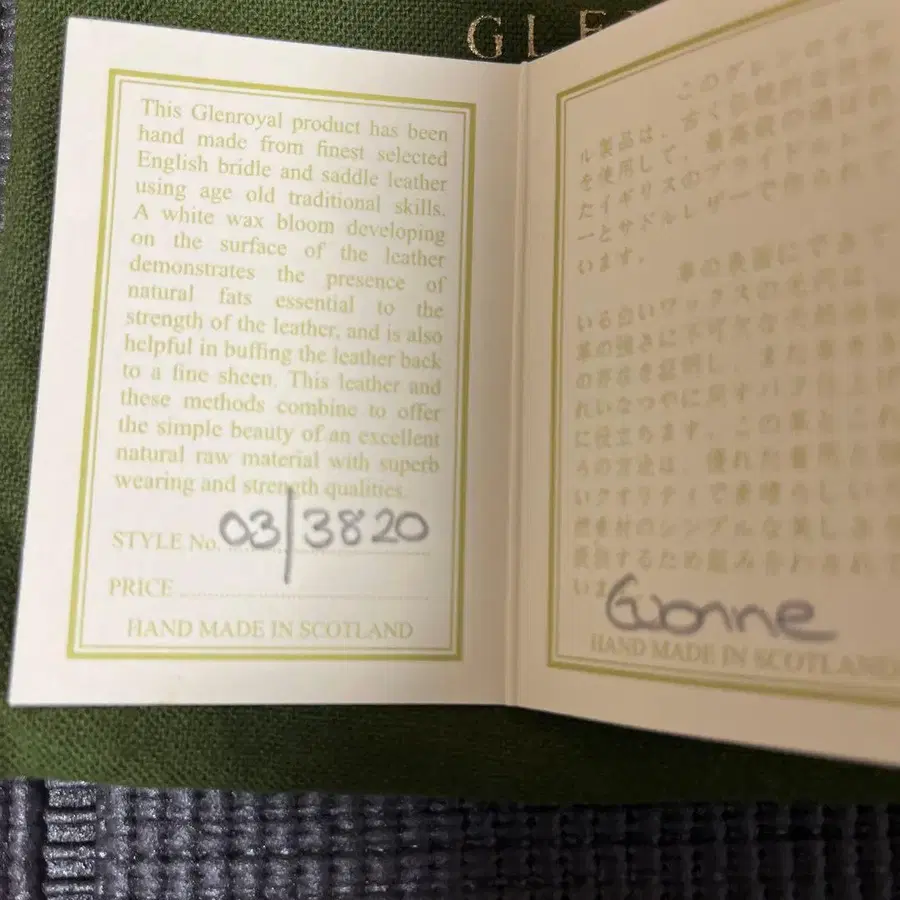 GLEN
This Glenroyal product has been
hand made from finest selected
English bridle and saddle leather
using age old traditional skills.
A white wax bloom developing
on the surface of the leather
demonstrates the presence of
natural fats essential to the
strength of the leather, and is also
helpful in buffing the leather back
to a fine sheen. This leather and
these methods combine to offer
the simple beauty of an excellent
natural raw material with superb
wearing and strength qualities.
STYLE No. 03/3820
PRICE
HAND MADE IN SCOTLAND
このグレンロイヤ
ル製品は、古く伝統的な技術
を使用して、最高級の選ばれ
たイギリスのブライドルレザ
ーとサドルレザーで作られ
います。
革の表面にできて
いる白いワックスの
革の強さに不可欠な天然油脂
の存在を証明し、また革をき
れいなつやに戻す
に役立ちます。この革とこれ
らの方法は、優れた
いクオリティで素晴らしい
然素材のシンプルな美しさを
提供するため組み合わされて
いま
HAND MADE IN SCOTLAND